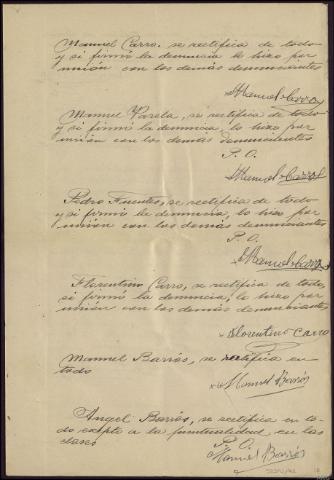 Manuel Carro. se rectifica de todo
y si firmó la denuncia lo hizo por
unión con los demás denunciantes
Manuel Carro
Manuel Varela, se rectifica de todo
y si firmó la denuncia, lo hizo por
unión con los demás denunciantes
P. O.
Manuel Carro
Pedro Fuentes, se rectifica de todo
y si firmó la denuncia, lo hizo por
unión con los demás denunciantes
P. O.
Manuel Carro
Florentino Carro, se rectifica de todo,
si firmó la denuncia, lo hizo por
unión con los demás denunciantes
Florentino Carro
Manuel Barrós, se rectifica en
todo
Manuel Barrós
Angel Barrós, se rectifica en to-
do expto a la puntualidad en las
clases
P. O.
Manuel Barrós